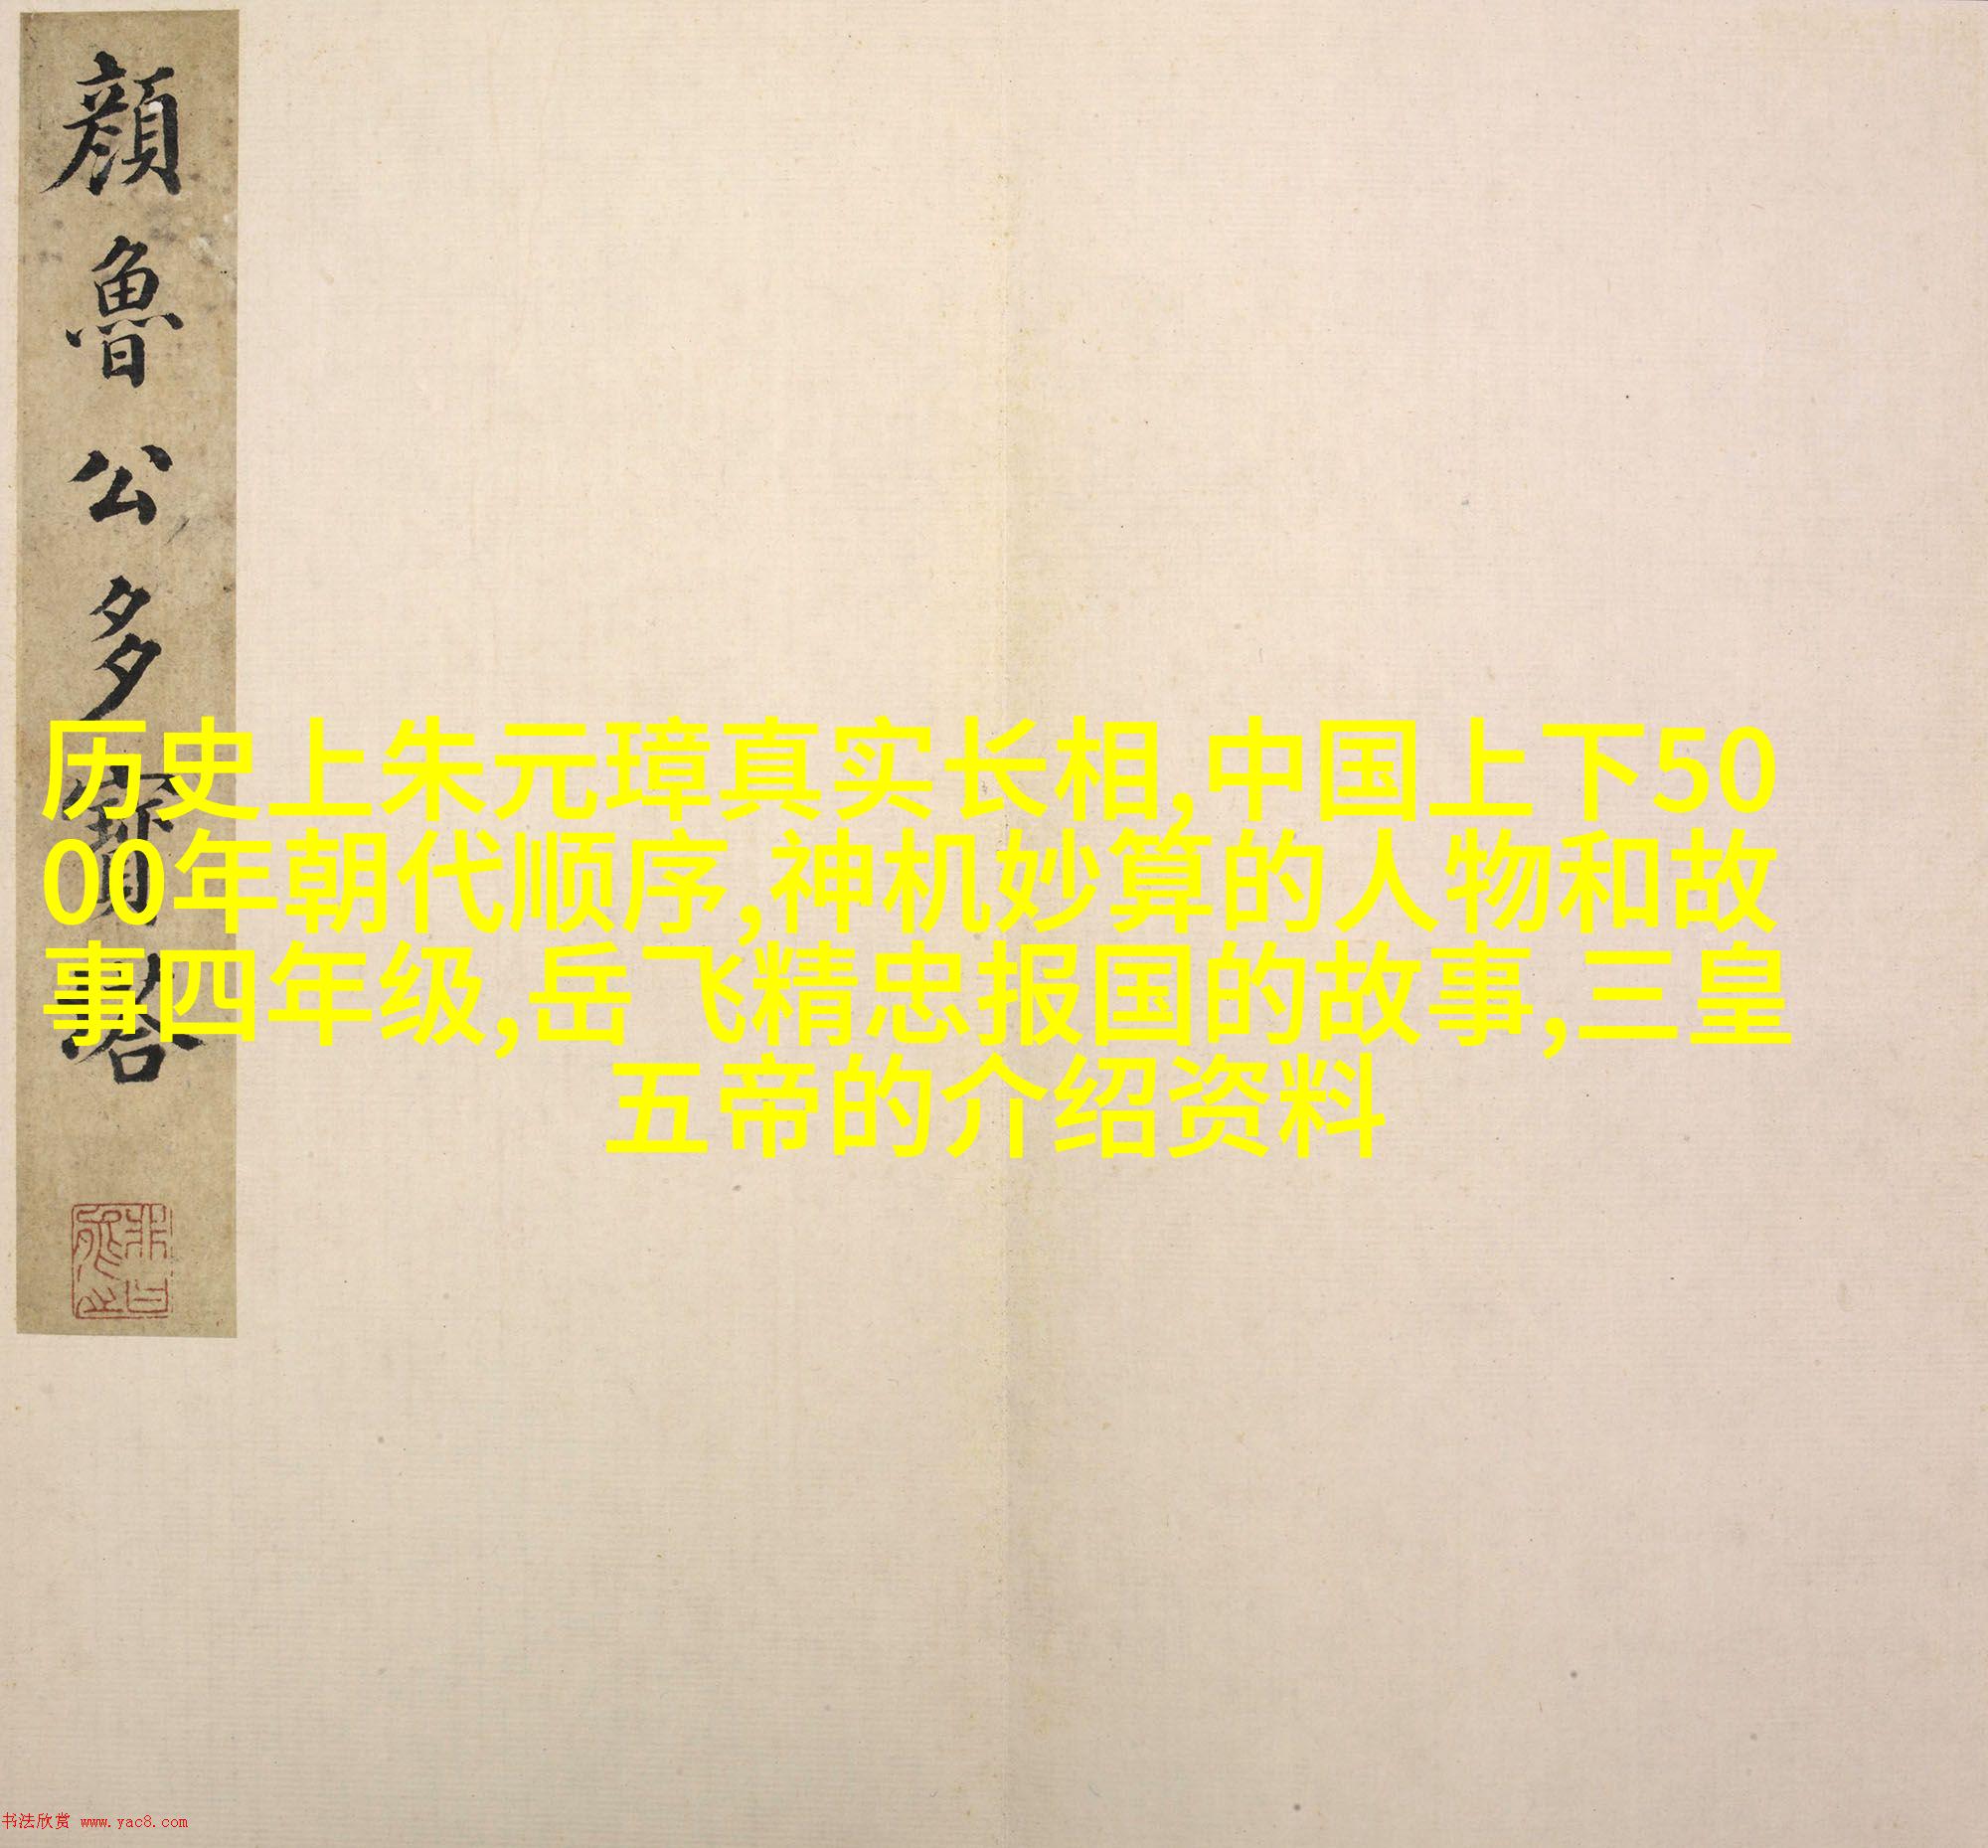 顏魯公多寶塔
历史上朱元璋真实长相,中国上下50
00年朝代顺序,神机妙算的人物和故
事四年级,岳飞精忠报国的故事,三皇
五帝的介绍资料
书法欣赏 www.yac8.com